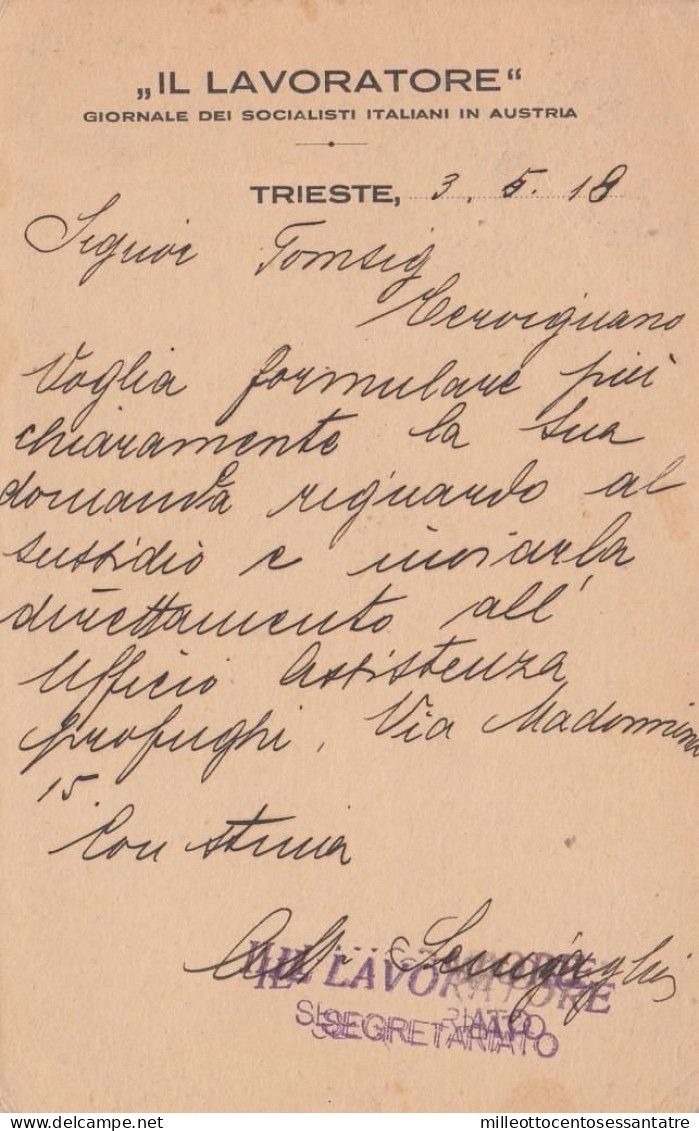 „IL LAVORATORE“
GIORNALE DEI SOCIALISTI ITALIANI IN AUSTRIA
TRIESTE, 3. 5. 18
Signor Tomsig
Cervignano
Voglia formulare più
chiaramente la sua
domanda riguardo al
sussidio e inviarla
direttamento all'
Ufficio Assistenza
profughi, Via Madonnina
15.
Con stima
IL LAVORATORE
SEGRETARIATO
delcampe.net
milleottocentosessantatre